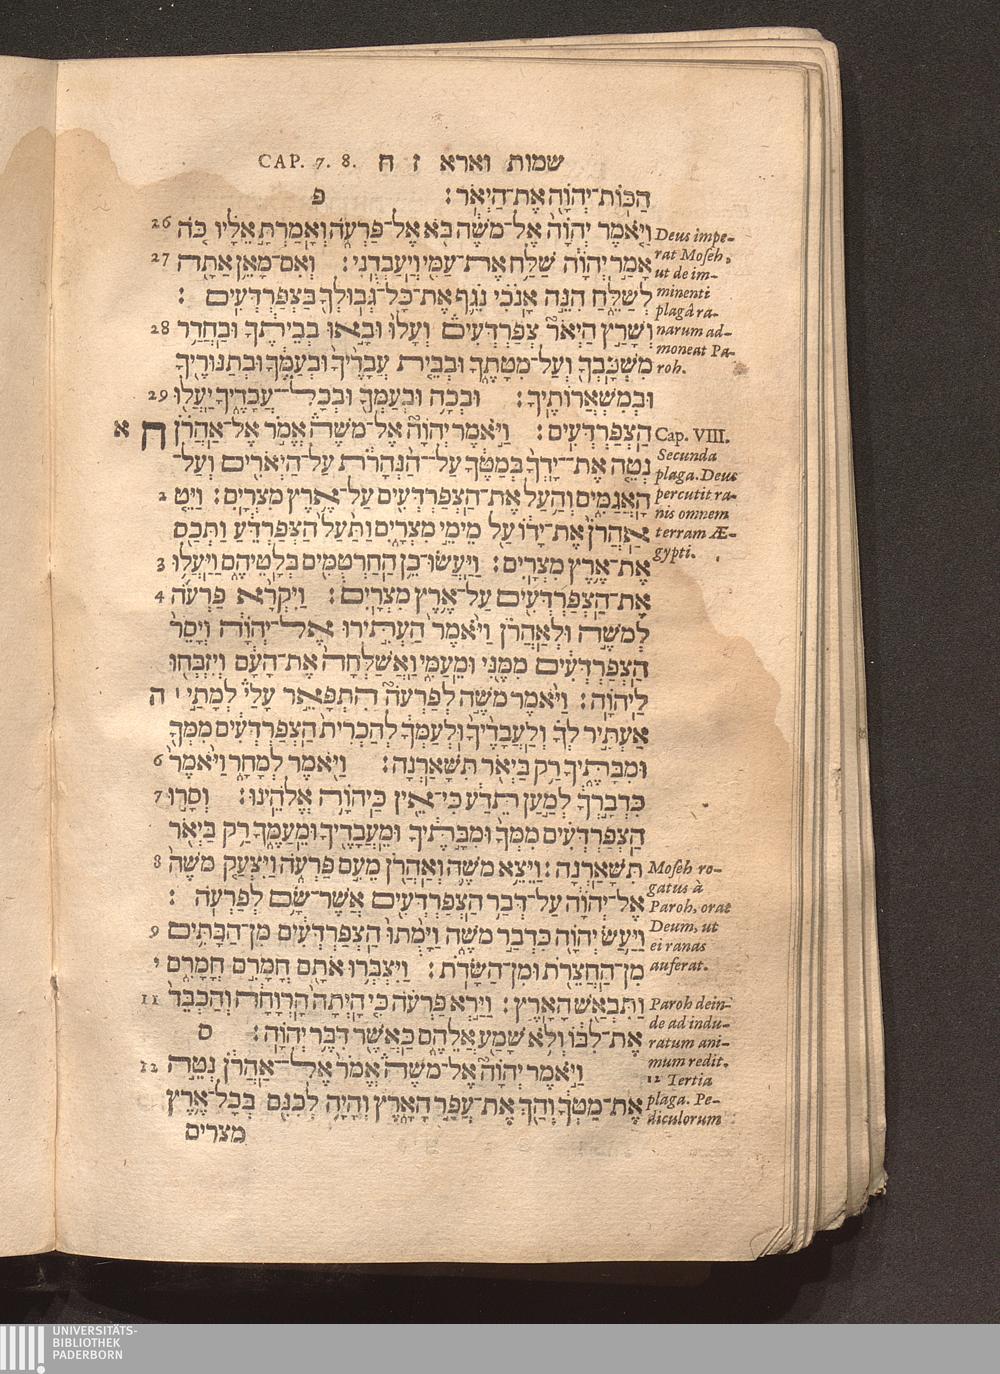 שמות וארא ז ח CAP. 7. 8.
הַכּוֹת־יְהוָֹה אֶת־הַיְאֹר׃ פ
וַיֹּאמֶר יְהוָֹה אֶל־מֹשֶׁה בֹּא אֶל־פַּרְעֹה וְאָמַרְתָּ אֵלָיו כֹּה 26
אָמַר יְהוָֹה שַׁלַּח אֶת־עַמִּי וְיַעַבְדֻנִי׃ וְאִם־מָאֵן אַתָּה 27
לְשַׁלֵּחַ הִנֵּה אָנֹכִי נֹגֵף אֶת־כָּל־גְּבוּלְךָ בַּצְפַרְדְּעִים׃
וְשָׁרַץ הַיְאֹר צְפַרְדְּעִים וְעָלוּ וּבָאוּ בְּבֵיתֶךָ וּבַחֲדַר 28
מִשְׁכָּבְךָ וְעַל־מִטָּתֶךָ וּבְבֵית עֲבָדֶיךָ וּבְעַמֶּךָ וּבְתַנּוּרֶיךָ
וּבְמִשְׁאֲרוֹתֶיךָ׃ וּבְכָה וּבְעַמְּךָ וּבְכָל־עֲבָדֶיךָ יַעֲלוּ 29
הַצְפַרְדְּעִים׃ וַיֹּאמֶר יְהוָֹה אֶל־מֹשֶׁה אֱמֹר אֶל־אַהֲרֹן ח א
נְטֵה אֶת־יָדְךָ בְּמַטֶּךָ עַל־הַנְּהָרֹת עַל־הַיְאֹרִים וְעַל־
הָאֲגַמִּים וְהַעַל אֶת־הַצְפַרְדְּעִים עַל־אֶרֶץ מִצְרָיִם׃ וַיֵּט 2
אַהֲרֹן אֶת־יָדוֹ עַל מֵימֵי מִצְרָיִם וַתַּעַל הַצְּפַרְדֵּעַ וַתְּכַס
אֶת־אֶרֶץ מִצְרָיִם׃ וַיַּעֲשׂוּ־כֵן הַחַרְטֻמִּים בְּלָטֵיהֶם וַיַּעֲלוּ 3
אֶת־הַצְפַרְדְּעִים עַל־אֶרֶץ מִצְרָיִם׃ וַיִּקְרָא פַרְעֹה 4
לְמֹשֶׁה וּלְאַהֲרֹן וַיֹּאמֶר הַעְתִּירוּ אֶל־יְהוָֹה וְיָסֵר
הַצְפַרְדְּעִים מִמֶּנִּי וּמֵעַמִּי וַאֲשַׁלְּחָה אֶת־הָעָם וְיִזְבְּחוּ
לַיהוָֹה׃ וַיֹּאמֶר מֹשֶׁה לְפַרְעֹה הִתְפָּאֵר עָלַי לְמָתַי׀ ה
אַעְתִּיר לְךָ וְלַעֲבָדֶיךָ וּלְעַמְּךָ לְהַכְרִית הַצְפַרְדְּעִים מִמְּךָ
וּמִבָּתֶּיךָ רַק בַּיְאֹר תִּשָּׁאַרְנָה׃ וַיֹּאמֶר לְמָחָר וַיֹּאמֶר 6
כִּדְבָרְךָ לְמַעַן תֵּדַע כִּי־אֵין כַּיהוָֹה אֱלֹהֵינוּ׃ וְסָרוּ 7
הַצְפַרְדְּעִים מִמְּךָ וּמִבָּתֶּיךָ וּמֵעֲבָדֶיךָ וּמֵעַמֶּךָ רַק בַּיְאֹר
תִּשָּׁאַרְנָה׃ וַיֵּצֵא מֹשֶׁה וְאַהֲרֹן מֵעִם פַּרְעֹה וַיִּצְעַק מֹשֶׁה 8
אֶל־יְהוָֹה עַל־דְּבַר הַצְפַרְדְּעִים אֲשֶׁר־שָׂם לְפַרְעֹה׃
וַיַּעַשׂ יְהוָֹה כִּדְבַר מֹשֶׁה וַיָּמֻתוּ הַצְפַרְדְּעִים מִן־הַבָּתִּים 9
מִן־הַחֲצֵרֹת וּמִן־הַשָּׂדֹת׃ וַיִּצְבְּרוּ אֹתָם חֳמָרִם חֳמָרִם י
וַתִּבְאַשׁ הָאָרֶץ׃ וַיַּרְא פַּרְעֹה כִּי הָיְתָה הָרְוָחָה וְהַכְבֵּד 11
אֶת־לִבּוֹ וְלֹא שָׁמַע אֲלֵהֶם כַּאֲשֶׁר דִּבֶּר יְהוָֹה׃ ס
וַיֹּאמֶר יְהוָֹה אֶל־מֹשֶׁה אֱמֹר אֶל־אַהֲרֹן נְטֵה 12
אֶת־מַטְּךָ וְהַךְ אֶת־עֲפַר הָאָרֶץ וְהָיָה לְכִנִּם בְּכָל־אֶרֶץ
מצרים
Deus impe-
rat Moseh,
ut de im-
minenti
plagâ ra-
narum ad-
moneat Pa-
roh.
Cap. VIII.
Secunda
plaga. Deus
percutit ra-
nis omnem
terram Æ-
gypti.
Moseh ro-
gatus à
Paroh, orat
Deum, ut
ei ranas
auferat.
Paroh dein-
de ad indu-
ratum ani-
mum redit.
12 Tertia
plaga. Pe-
diculorum
UNIVERSITÄTS-
BIBLIOTHEK
PADERBORN